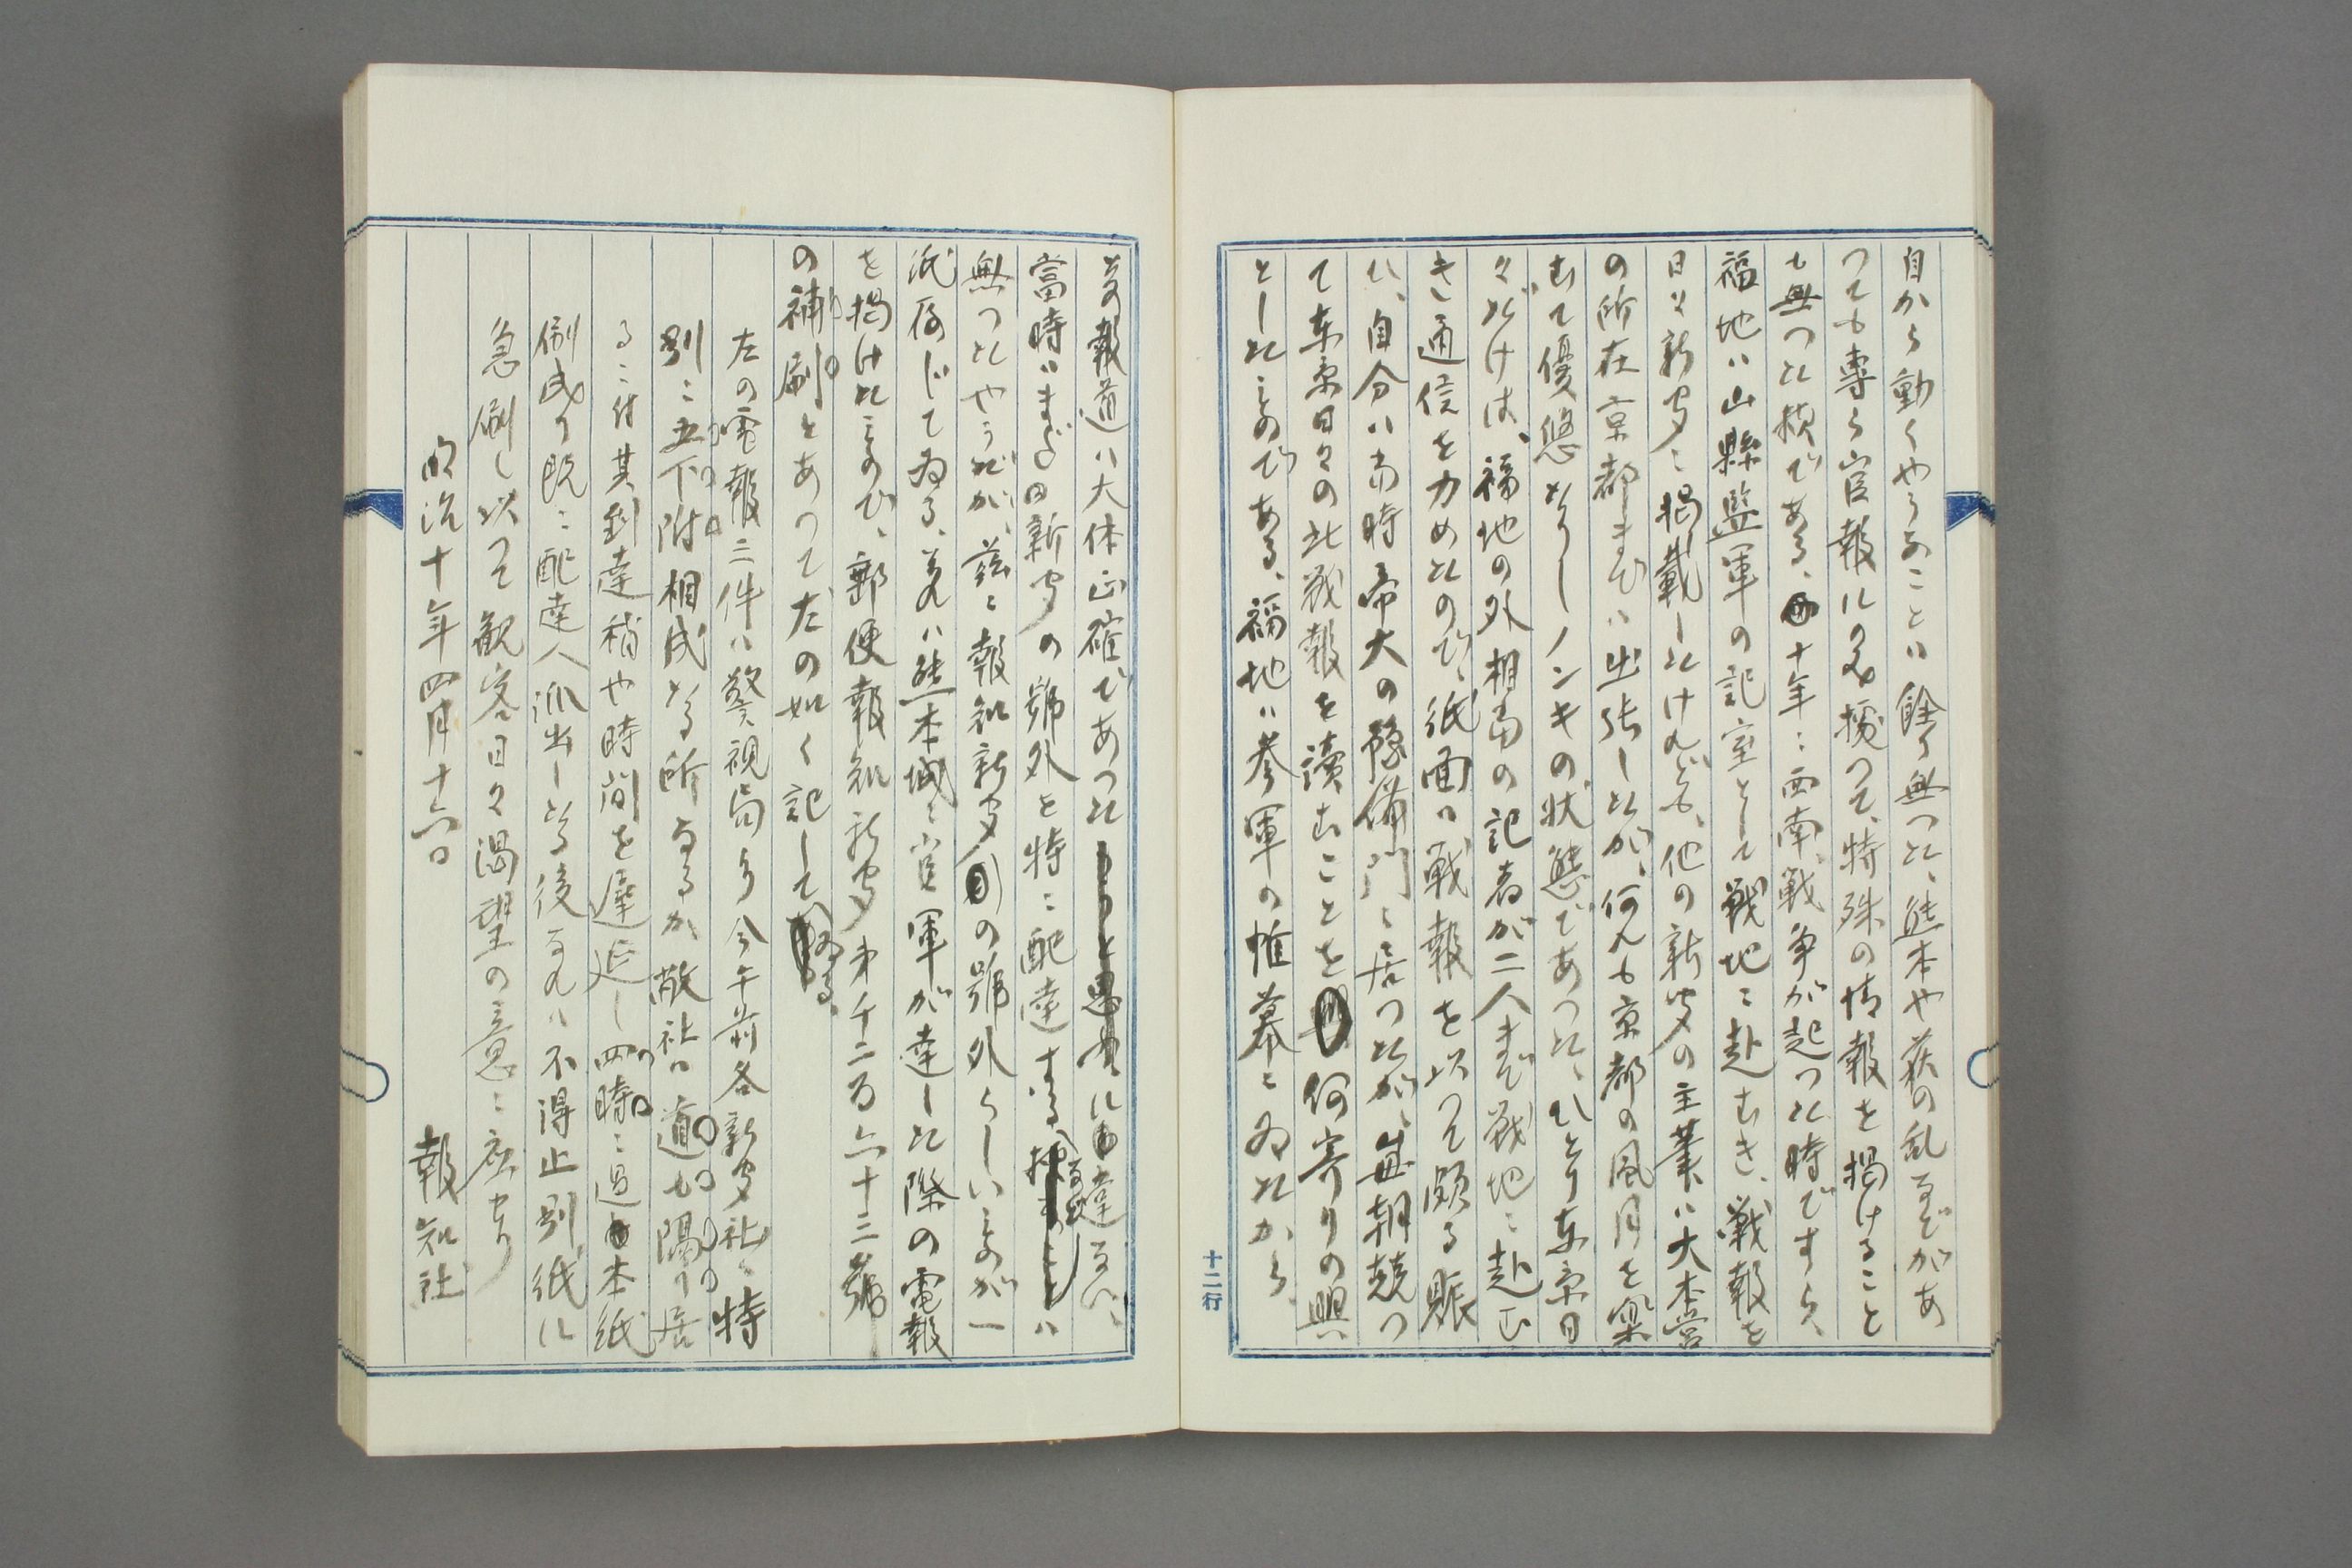 自から動くやうなことは餘り無つた、熊本や萩の乱などがあ
つても專ら官報に據つて、特殊の情報を掲けること
も無つた様である、十年に西南戦争が起つた時ですら、
福地は山縣監軍の記室として戦地に赴むき、戦報を
日々新聞に掲載したけれども、他の新聞の主筆は大本営
の所在京都までは出張したが、何れも京都の風月を楽
むで優悠としノンキの状態であつた、ひとり東京日
々だけは、福地の外相當の記者が二人まで戦地に赴む
き通信を力めたので、紙面は戦報を以つて頗る賑
ひ、自分は当時帝大の豫備門に居つたが、毎朝競つ
て東京日々の此戦報を讀むことを何寄りの興
としたものである、福地は参軍の帷幕にゐたから、
十二行
其の報道は大体正確であつたに違ない、
當時はまだ新聞の號外を特に配達する は
無つたやうだが、茲に報知新聞の號外らしいものが一
紙存じてゐる、それは熊本城に官軍が達した際の電報
を掲けたもので、郵便報知新聞第千二百六十三號
の補刷とあつて左の如く記してゐる、
左の電報三件は警視局ゟ今午前各新聞社に特
別に五下附相成たる所なるが敝社は道も隔り居
るに付其到達稍や時間を遅延し四時に過本紙
刷成り既に配達人派出したる後なれは不得止別紙に
急刷し以つて観客日々渇望の意に応せり
明治十年四月十六日
報知社